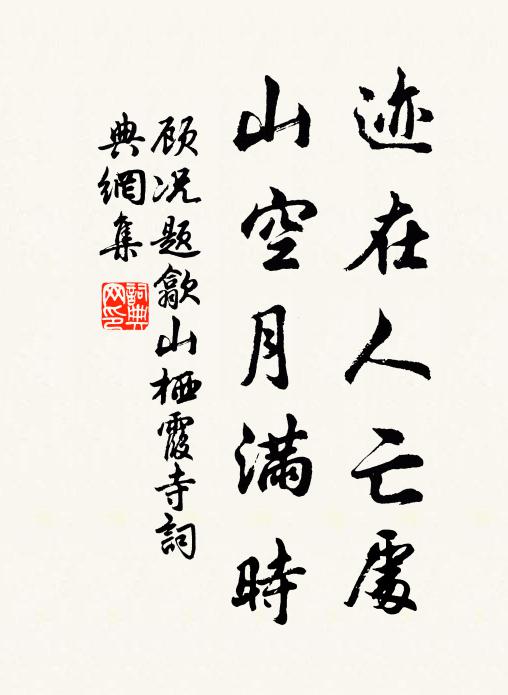 迹在人亡處
山空月满時
顾况题歙山栖霞寺詞
典網集
詞典
网印